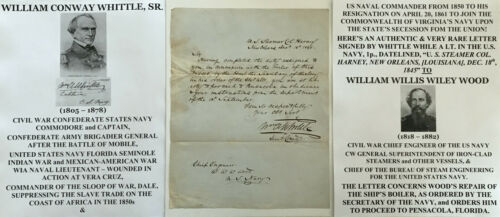 WILLIAM CONWAY WHITTLE, SR.
(1805 – 1878)
CIVIL WAR CONFEDERATE STATES NAVY
COMMODORE and CAPTAIN,
CONFEDERATE ARMY BRIGADIER GENERAL
AFTER THE BATTLE OF MOBILE,
UNITED STATES NAVY FLORIDA SEMINOLE
INDIAN WAR and MEXICAN-AMERICAN WAR
WIA NAVAL LIEUTENANT – WOUNDED IN
ACTION AT VERA CRUZ,
COMMANDER OF THE SLOOP OF WAR, DALE,
SUPPRESSING THE SLAVE TRADE ON THE
COAST OF AFRICA IN THE 1850s
&
U. S. Steamer Col. Harney
New Orleans Dec. 18th 1845
Sir
Having completed the duty assigned to
you, in
of the
you
city
to proceed to Pensacola in obedience
to your instructions from the department
of the
September
Very Respectfully
Your Obt Svt
Wm C Whittle
Chief Engineer
W. W. W. Wood
U. S. Navy
US NAVAL COMMANDER FROM 1850 TO HIS
RESIGNATION ON APRIL 20, 1861 TO JOIN THE
COMMONWEALTH OF VIRGINIA'S NAVY UPON
THE STATE'S SECESSION FOM THE UNION!
HERE'S AN AUTHENTIC & VERY RARE LETTER
SIGNED BY WHITTLE WHILE A LT. IN THE U.S.
NAVY, 1p., DATELINED, "U. S. STEAMER COL.
HARNEY, NEW ORLEANS, [LOUISIANA], DEC. 18th,
1845" TO
WILLIAM WILLIS WILEY WOOD
(1818 – 1882)
CIVIL WAR CHIEF ENGINEER OF THE US NAVY
CW GENERAL SUPERINTENDENT OF IRON-CLAD
STEAMERS and OTHER VESSELS, &
CHIEF OF THE BUREAU OF STEAM ENGINEERING
FOR THE UNITED STATES NAVY.
THE LETTER CONCERNS WOOD'S REPAIR OF
THE SHIP'S BOILER, AS ORDERED BY THE
SECRETARY OF THE NAVY, and ORDERS HIM
TO PROCEED TO PENSACOLA, FLORIDA.